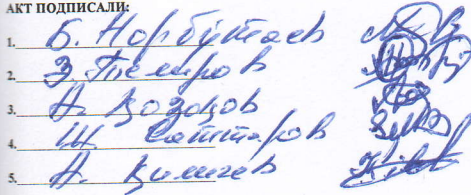 АКТ ПОДПИСАЛИ:
1. Б. Норбўтаев
2. З. Темиров
3. А. Возоков
4. Ш. Саттаров
5. А.